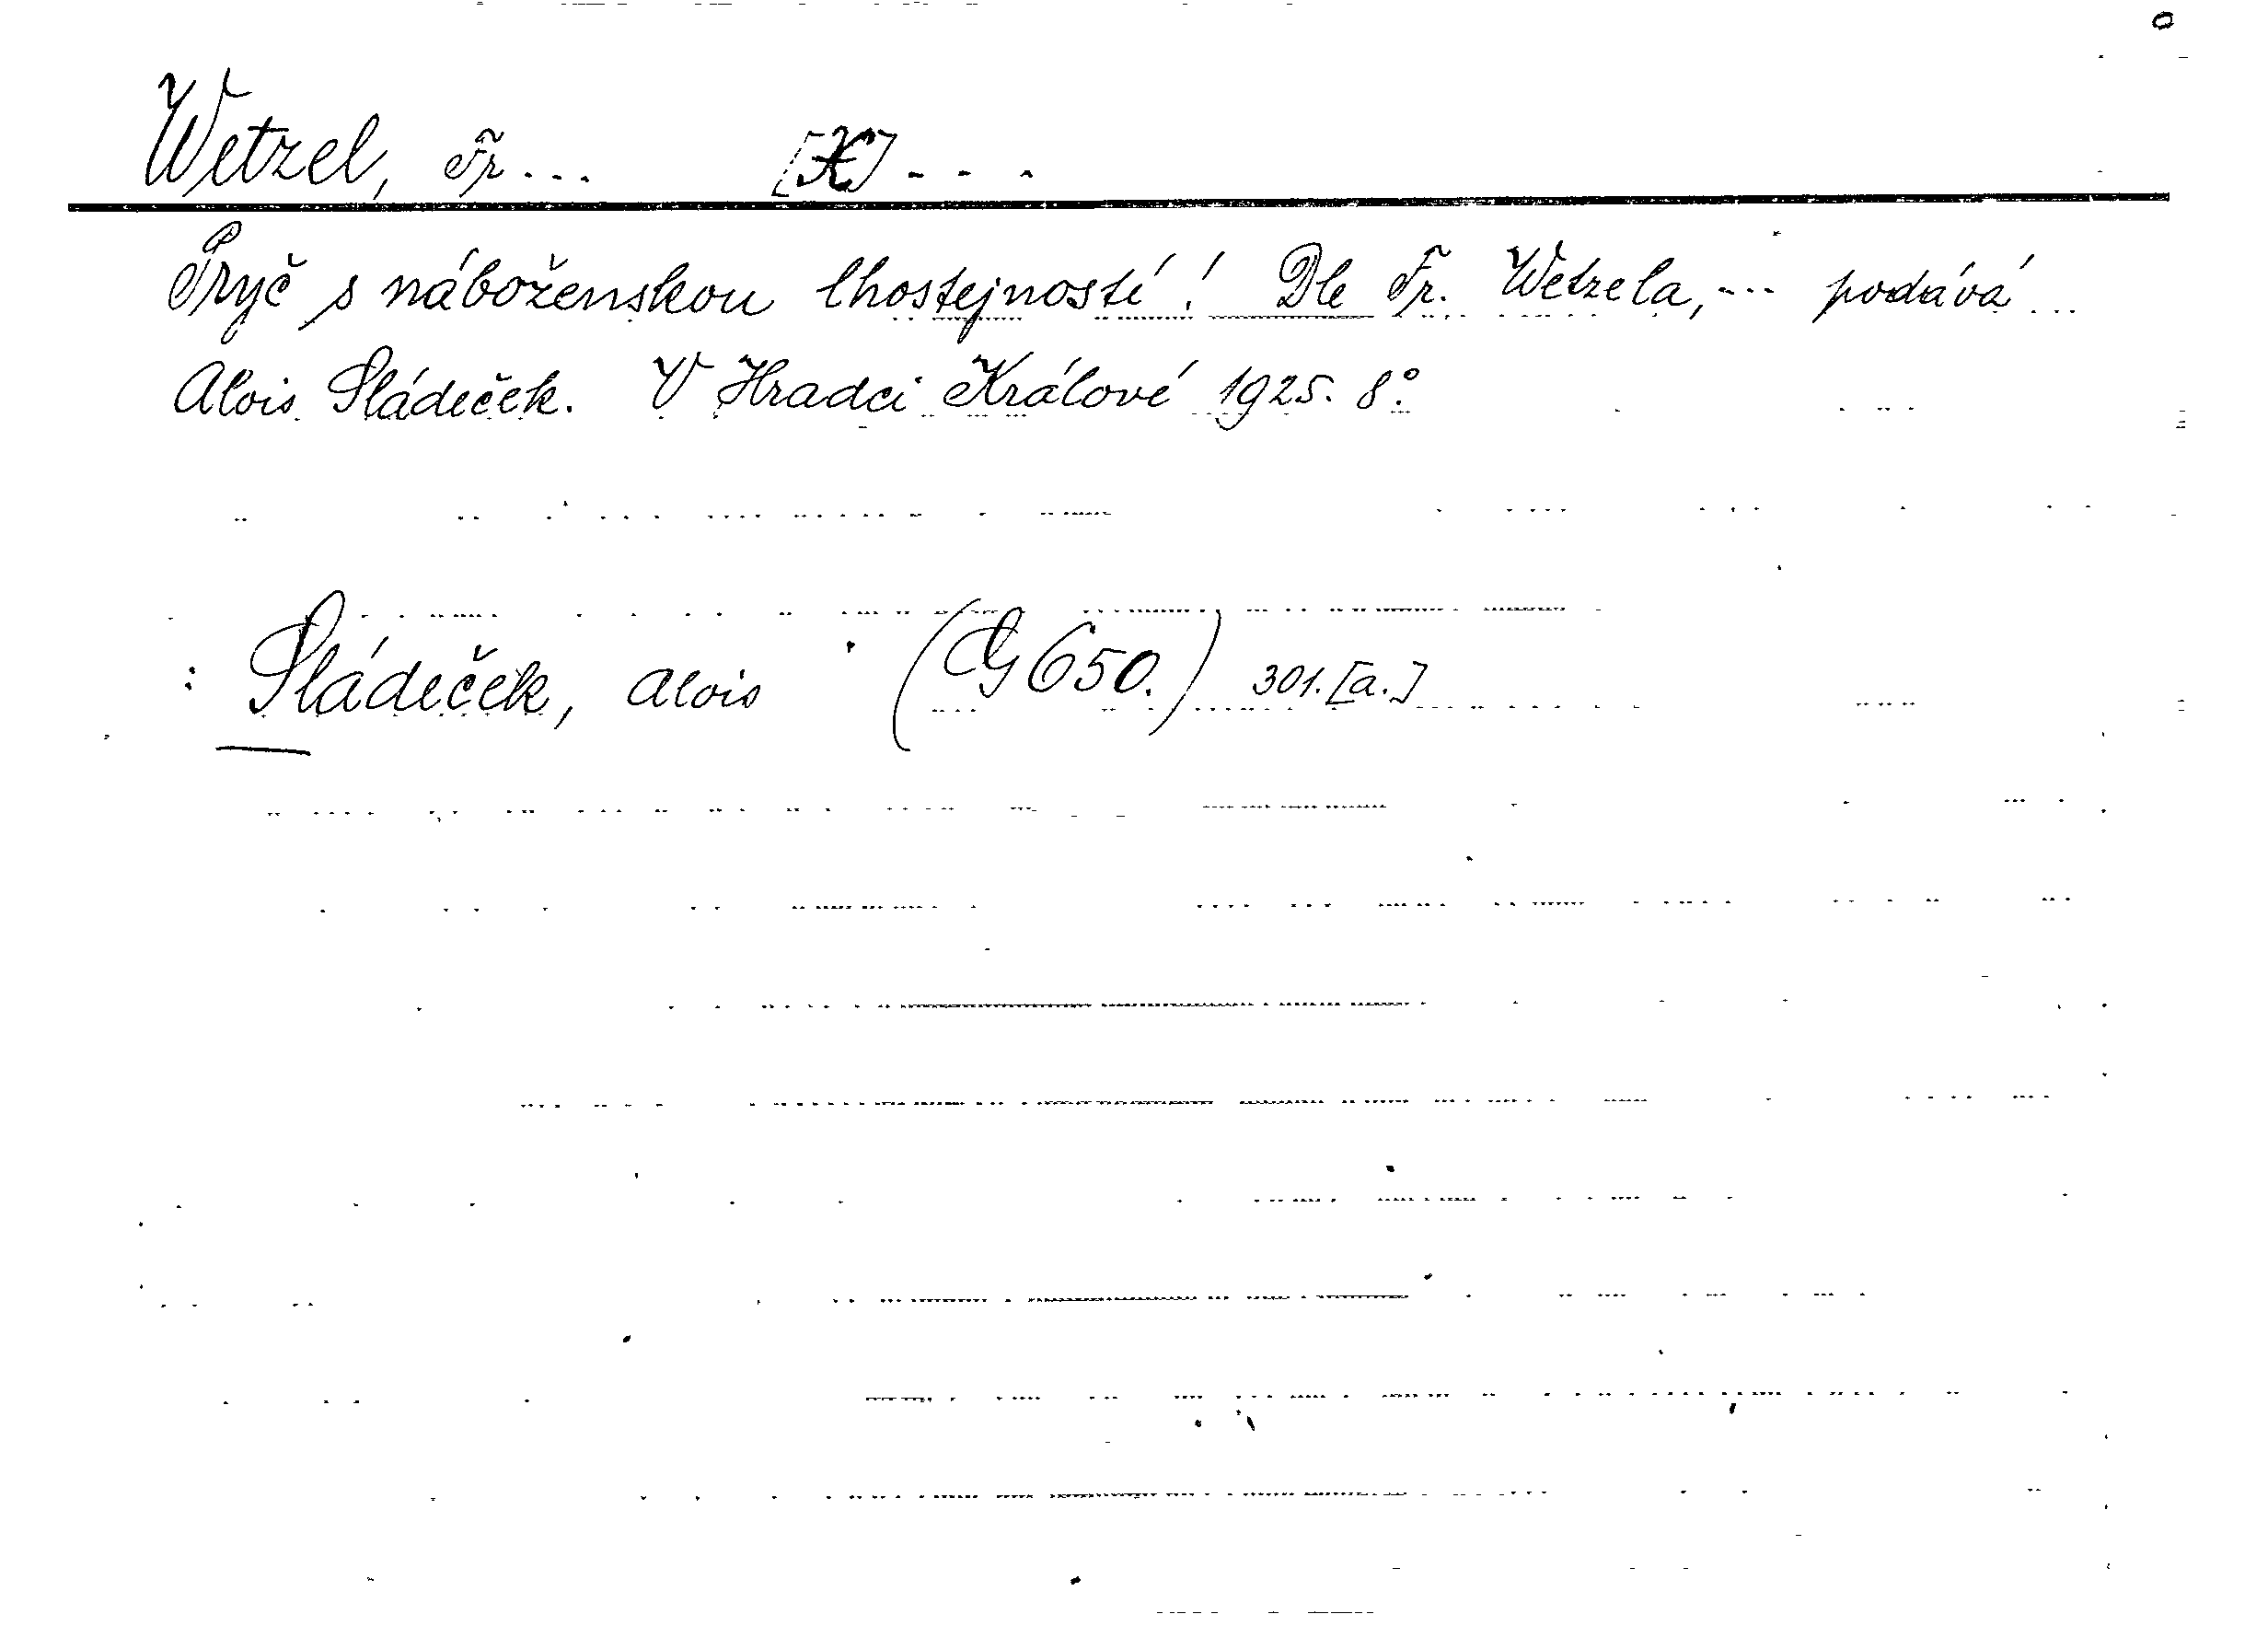 Wetzel, Fr... [X]...
Pryč s náboženskou lhostejností! Dle Fr. Wetzela,... podává
Alois Sládeček. V Hradci Králové 1925. 8°
: Sládeček, Alois (G 650.) 301. [a.]